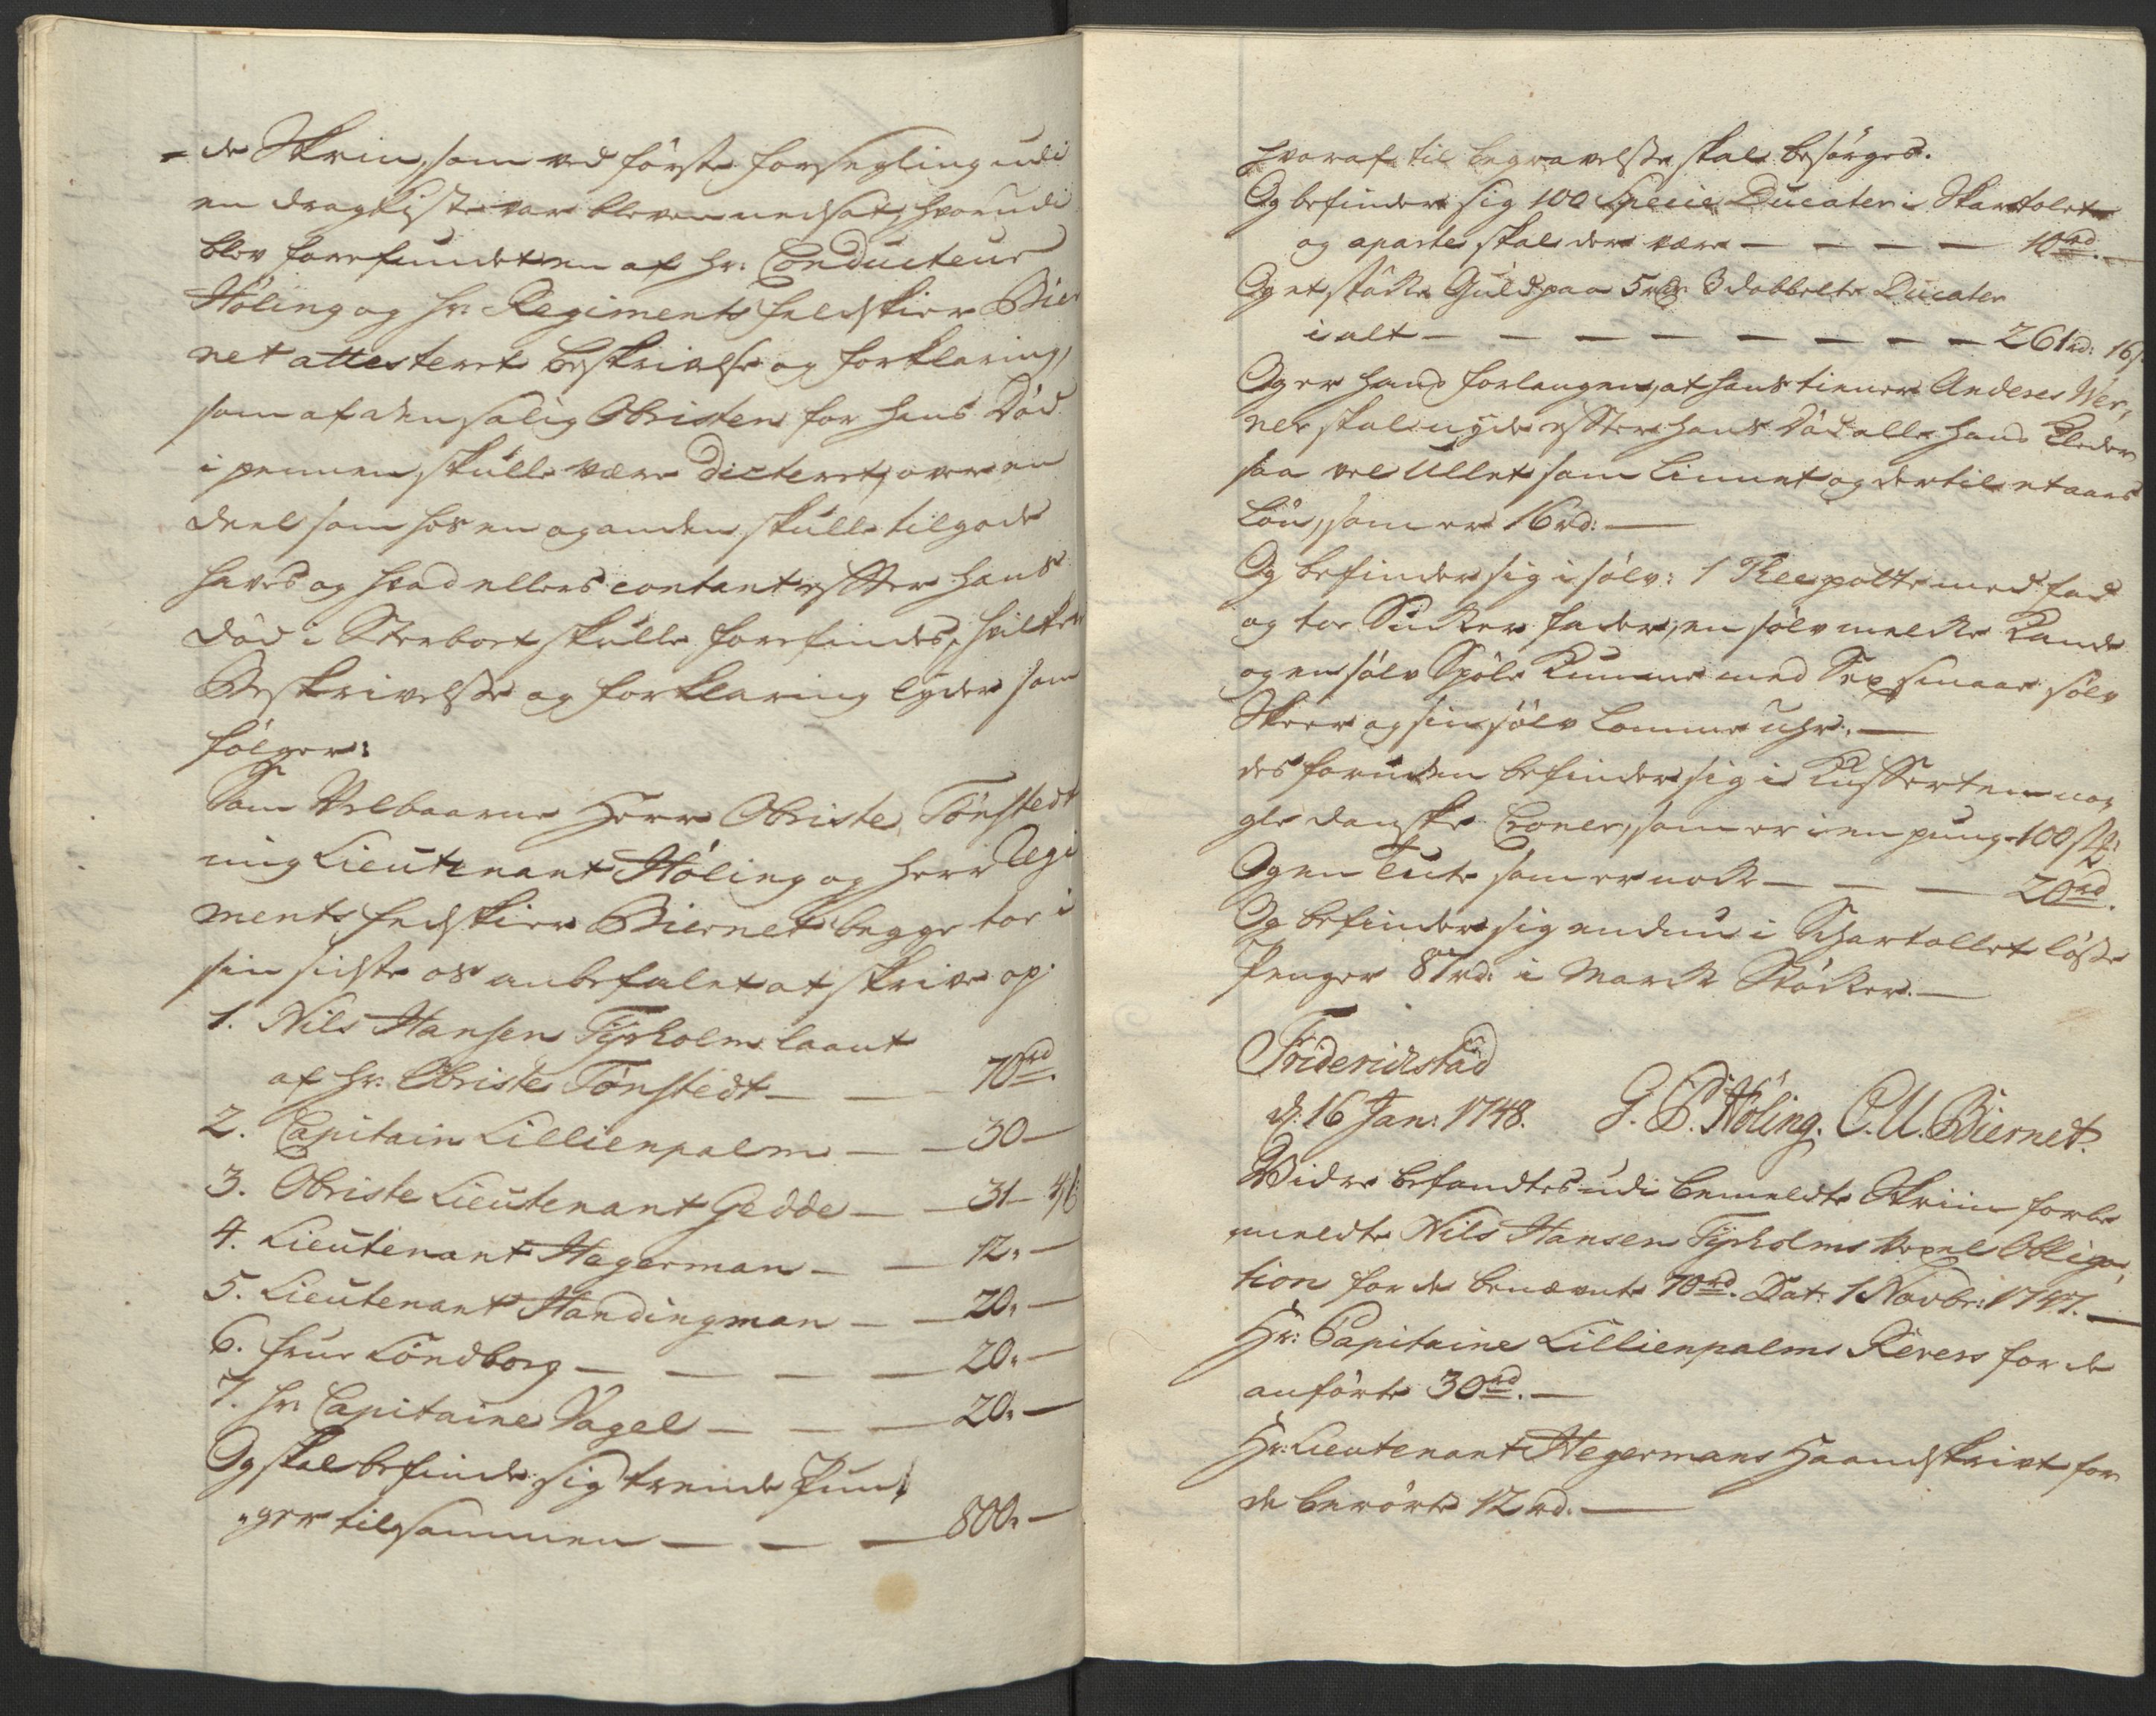 de Skrin, som ved förste forsegling udi
en dragkiste var bleven nedsat, hvorudi
blev forefundet en af hr: Conducteur
Höling og hr: Regiments feldskier Bier
net attesteret beskrivelse og forklaring,
som af den salig Obristen for hans Död
i pennen skulle være dicteret, over en
deel som hos en og anden skulle tilgode
haves og hvad ellers contant effter hans
död i Sterboet skulle forefindes, hvilken
Beskrivelse og forklaring lyder som
fölger:
Som Velbaarne Herr Obriste Tönstedt
mig Lieutenant Höling og herr Regi
ments feldskier Biernet begge toe i
sin sidste os anbefalet at skrive op.
1. Nils Hansen Tyrholm laant
af hr: Obriste Tönstedt — — 70rd.
2. Capitain Lillienpalm — — 30 —
3. Obriste Lieutenant Gedde — — 31 — 4ß
4. Lieutenant Hegerman — — 12. —
5. Lieutenant Handingman — — 20. —
6. frue Löndborg — — — — 20. —
7. hr: Capitaine Vagel — — — 20. —
Og skal befinde sig trende Pun,
„ger tilsammen — — — 800. —
hvoraf til begravelse skal besörges.
Og befinder sig 100 Specie Ducater i Skartolet
og aparte skal der være — — — — 10rd. —
Og et stöcke Guld paa 5rd: 3 dobbelte Ducater
i alt — — — — — — — — 261rd: 16ß
Og er hans forlangen, at hans tiener Anderes Wer,
ner skal nyde effter hans död alle hans Kleder
saa vel Ullet som Linnet og dertil et aars
Lön, som er 16rd: —
Og befinder sig i sölv: 1 Theepotte med fad
og toe Sucker fader, en sölv melcke Kande
og en sölv Spöle Kumme med Sex smaae sölv
Skeer og sin sölv Lomme uhr. —
des foruden befinder sig i Kufferten nog
gle danske Croner, som er i en pung 100 st:
Og en Tute som er nock — — — 20rd.
Og befinder sig endnu i Schartollet löse
Penger 87rd: i Marck Stöcker. —
Friderichstad
d: 16 Jan: 1748. G. P. Höling. C. U. Biernet.
Widre befandtes udi bemeldte Skriin forbe
meldte Nils Hansen Tyrholms Vexel Obliga,
tion for de benævnte 70rd. Dat: 1 Novbr: 1747. —
Hr: Capitaine Lillienpalms Revers for de
anförte 30rd. —
Hr: Lieutenant Hegermans Haandskrivt for
de berörte 12rd. —